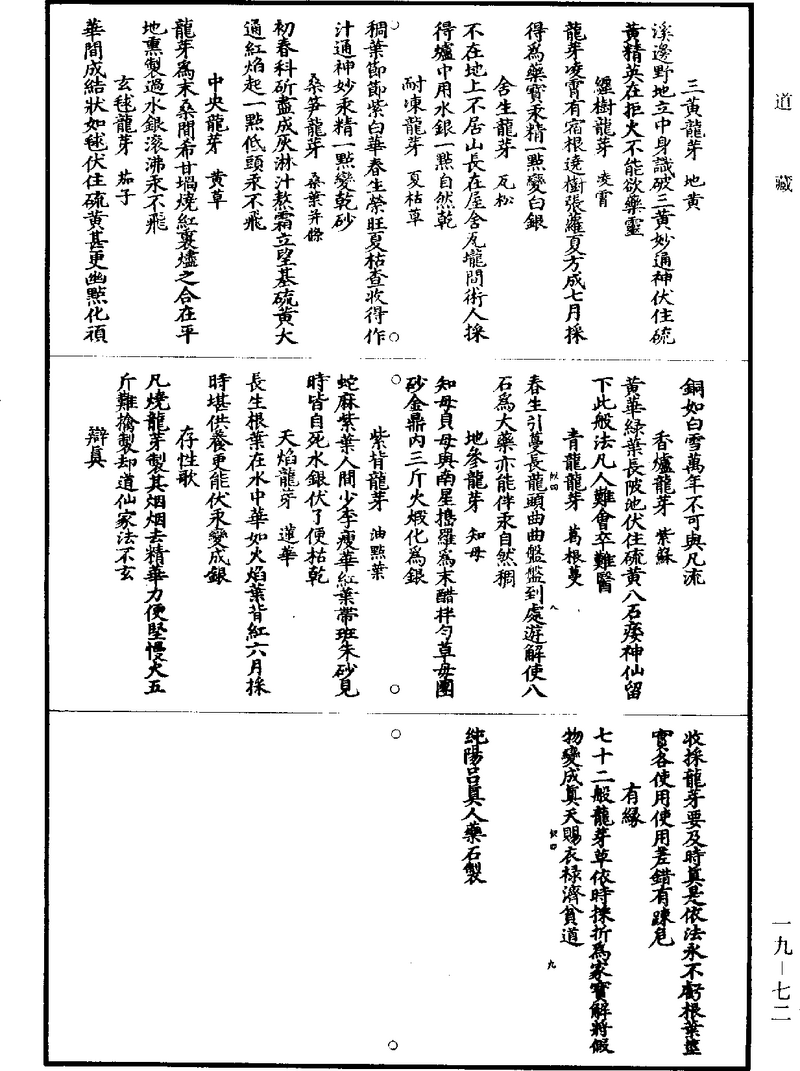 道藏
三黃龍芽　地黃
溪邊野地立中身識破三黃妙通神伏住硫
黃精英在拒火不能欲藥靈
纏樹龍芽　凌霄
龍芽凌霄有宿根遶樹張羅夏方成七月採
得為藥寶汞精一點變白銀
舍生龍芽　瓦松
不在地上不居山長在屋舍瓦壠間術人採
得爐中用水銀一點自然乾
耐凍龍芽　夏枯草
稠葉節節紫白華春生榮旺夏枯查收得作
汁通神妙汞精一點變乾砂
桑笋龍芽　桑葉并條
初春科斫盡成灰淋汁熬霜立望基硫黃大
通紅焰起一點低頭汞不飛
中央龍芽　黃草
龍芽為末桑間希甘堝燒紅裹爐之合在平
地熏製過水銀滚沸汞不飛
玄毬龍芽　茄子
華間成結狀如毬伏住硫黃甚更幽點化頑
銅如白雪萬年不可與凡流
香爐龍芽　紫蘇
黃華綠葉長陂池伏住硫黃八石痿神仙留
下此般法凡人難會卒難醫
青龍龍芽　葛根蔓
春生引蔓長龍頭曲曲盤盤到處遊解使八
似四　八
石為大藥亦能伴汞自然稠
地參龍芽　知母
知母貝母與南星擣羅為末醋拌勻草母團
砂金鼎內三斤火煅化為銀
紫背龍芽　油點葉
蛇麻紫葉人間少李瘦華紅葉帶班朱砂見
時皆自死水銀伏了便枯乾
天焰龍芽　蓮華
長生根葉在水中華如火焰葉背紅六月採
時堪供養更能伏汞變成銀
存性歌
凡燒龍芽製其烟烟去精華力便堅慢火五
斤難擒製却道仙家法不玄
辯真
收採龍芽要及時真是依法永不虧根葉莖
實各使用使用差錯有踈危
有緣
七十二般龍芽草依時採折為家寶解將假
物變成真天賜衣祿濟貧道
似四　九
純陽呂真人藥石製
一九－七二